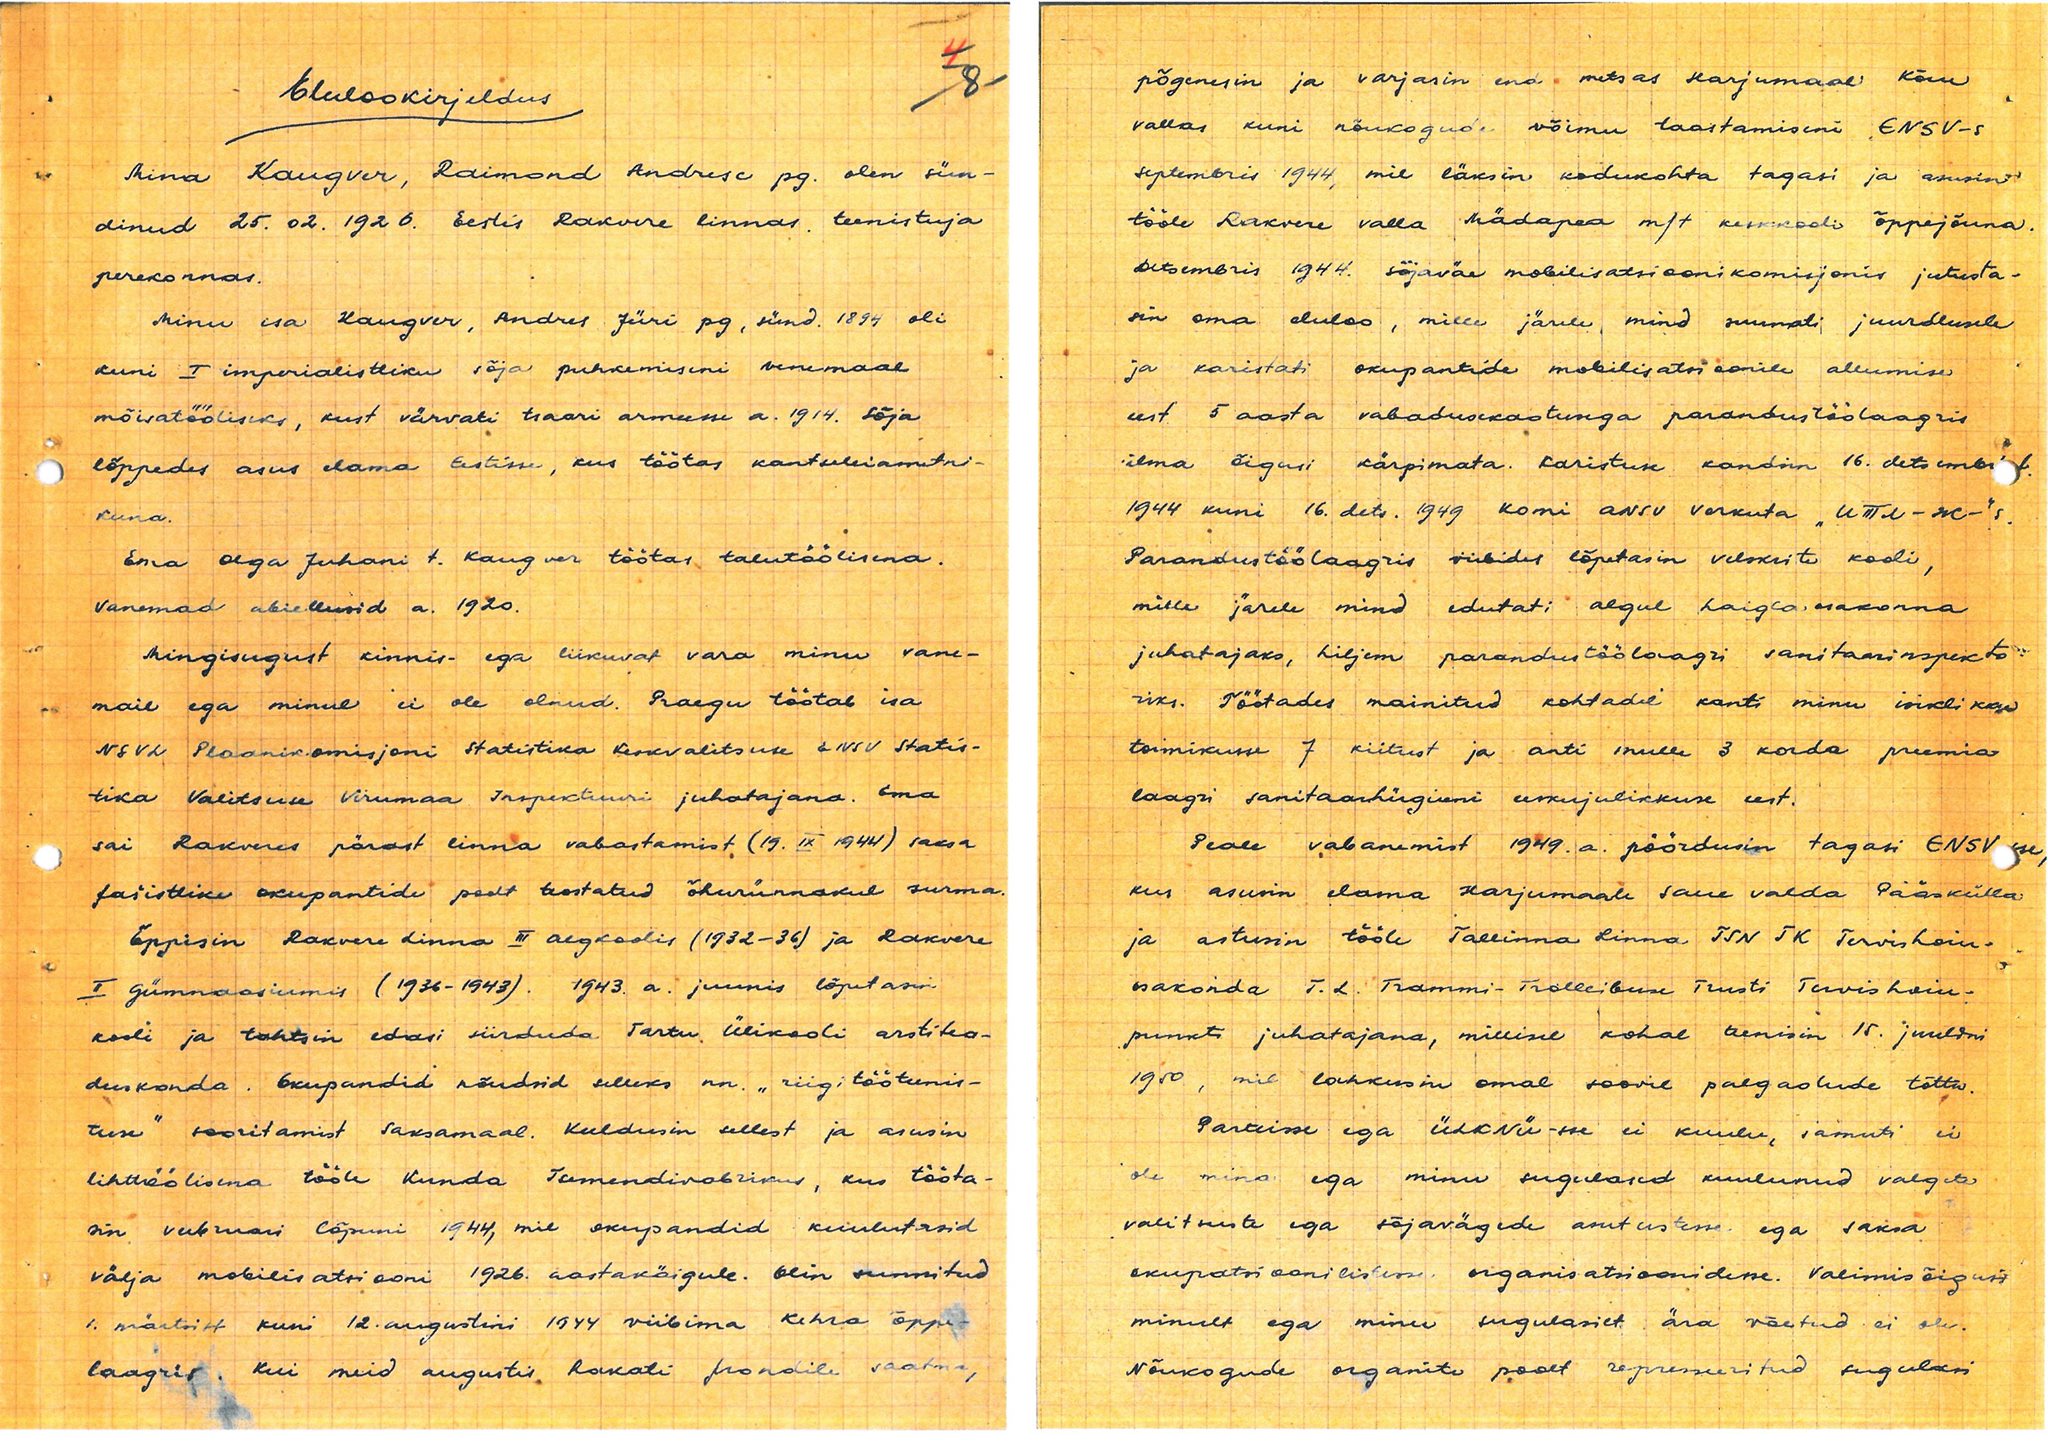 4
8
Elulookirjeldus
Mina Kaugver, Raimond Andrese pg. olen sün-
dinud 25. 02. 1926. Eestis Rakvere linnas, teenistuja
perekonnas.
Minu isa Kaugver, Andres Jüri pg, sünd. 1894 oli
kuni I imperialistliku sõja puhkemiseni venemaal
mõisatööliseks, kust värvati tsaari armeesse a. 1914. Sõja
lõppedes asus elama Eestisse, kus töötas kantseleiametni-
kuna.
Ema Olga Juhani t. Kaugver töötas talutöölisena.
Vanemad abiellusid a. 1920.
Mingisugust kinnis- ega liikuvat vara minu vane-
mail ega minul ei ole olnud. Praegu töötab isa
NSVL Plaanikomisjoni Statistika Keskvalitsuse ENSV Statis-
tika Valitsuse Virumaa Inspektuuri juhatajana. Ema
sai Rakveres pärast linna vabastamist (19. IX 1944) saksa
fašistlike okupantide poolt teostatud õhurünnakul surma.
Õppisin Rakvere Linna III algkoolis (1932-36) ja Rakvere
I Gümnaasiumis (1936-1943). 1943. a. juunis lõpetasin
kooli ja tahtsin edasi siirduda Tartu Ülikooli arstitea-
duskonda. Okupandid nõudsid selleks nn. „riigi töötenis-
tuse" sooritamist Saksamaal. Keeldusin sellest ja asusin
lihttöölisena tööle Kunda Tsemendivabrikus, kus tööta-
sin veebruari lõpuni 1944, mil okupandid kuulutasid
välja mobilisatsiooni 1926. aastakäigule. Olin sunnitud
1. märtsist kuni 12. augustini 1944 viibima Kehra õppe-
laagris. Kui meid augustis hakati frondile saatma,
põgenesin ja varjasin end metsas Harjumaal Kõue
vallas kuni nõukogude võimu taastamiseni ENSV-s
septembris 1944, mil läksin kodukohta tagasi ja asusin
tööle Rakvere valla Mädapea m/t keskkooli õppejõuna.
Detsembris 1944. sõjaväe mobilisatsioonikomisjonis jutusta-
sin oma eluloo, mille järele mind suunati juurdlusele
ja karistati okupantide mobilisatsioonile allumise
eest 5 aasta vabadusekaotusega parandustöölaagris
ilma õigusi kärpimata. Karistuse kandsin 16. detsembril.
1944 kuni 16. dets. 1949 Komi ANSV Vorkuta „UTTL-Ж-"s.
Parandustöölaagris viibides lõpetasin velskrite kooli,
mille järele mind edutati algul haigla osakonna
juhatajaks, hiljem parandustöölaagri sanitaarinspekto-
riks. Töötades mainitud kohtadel kanti minu isiklikku
toimikusse 7 kiitust ja anti mulle 3 korda preemia
laagri sanitaarhügieeni eeskujulikkuse eest.
Peale vabanemist 1949. a. pöördusin tagasi ENSV-sse,
kus asusin elama Harjumaale Saue valda Pääskülla
ja astusin tööle Tallinna Linna TSN TK Tervishoiu-
osakonda T. L. Trammi-Trolleibuse Trusti Tervishoiu-
punkti juhatajana, millisel kohal teenisin 15. juulini
1950, mil lahkusin omal soovil palgaolude tõttu.
Parteisse ega ÜLKNÜ-sse ei kuulu, samuti ei
ole mina ega minu sugulased kuulunud valgete
valitsuste ega sõjavägede asutustesse ega saksa
okupatsioonilistesse organisatsioonidesse. Valimisõigusi
minult ega minu sugulasilt ära võetud ei ole.
Nõukogude organite poolt represseeritud sugulasi